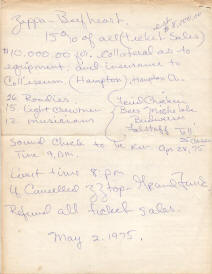 Zappa - Beefheart
15 % of all (ticket Sales)
$10,000.00 for collateral as to
equipment and insurance to
Colliseum, (Hampton), Hampton Va.
26 Roadies
15 Light showmen
13 musicians
Fried Chicken
Beer - Michelob
Budweiser
Falstaff
Sound Check to be run Apr 28, 75
Time 9,
Curt time 8 pm
If Cancelled ZZ top - Grand Funk
Refund all ticket sales.
May 2, 1975,